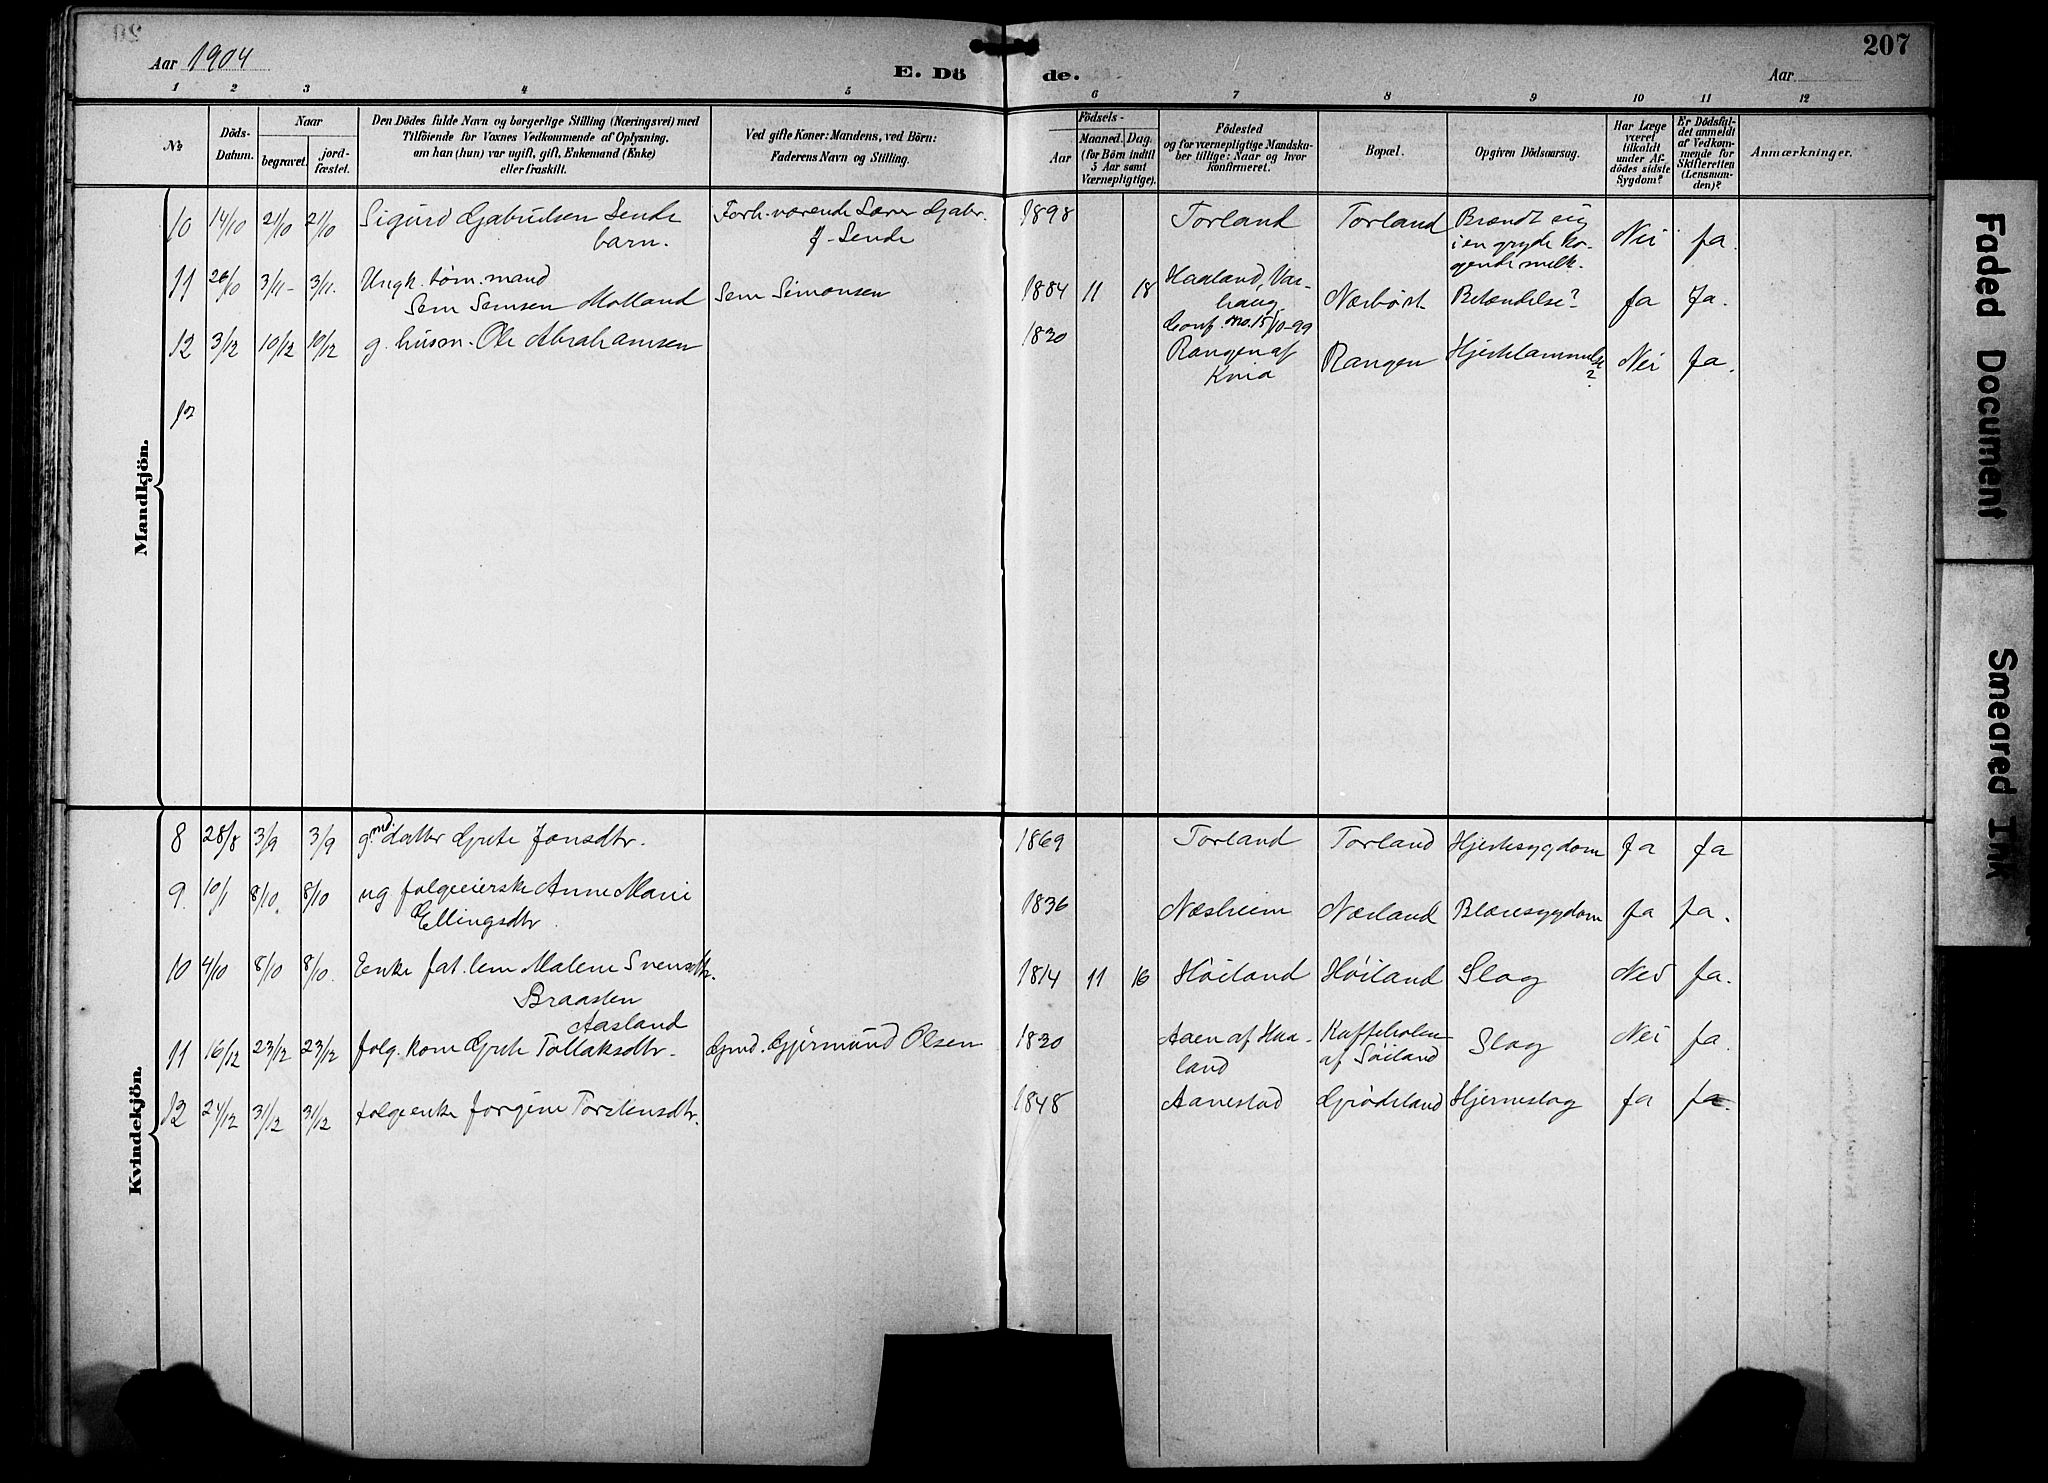 Aar 1904
E. Dö de.
Aar
207
1 2 3 4 5 6 7 8 9 10 11 12
№
Döds-Datum.
Naar
begravet. jord-fæstet.
Den Dödes fulde Navn og borgerlige Stilling (Næringsvei) med
Tilföiende for Voxnes Vedkommende af Oplysning,
om han (hun) var ugift, gift, Enkemand (Enke)
eller fraskilt.
Ved gifte Koner: Mandens, ved Börn:
Faderens Navn og Stilling.
Födsels-
Aar
Maaned. Dag.
(for Börn indtil
5 Aar samt
Værnepligtige).
Födested
og for værnepligtige Mandska-
ber tillige: Naar og hvor
konfirmeret.
Bopæl.
Opgiven Dödsaarsag.
Har Læge
været
tilkaldt
under Af-
dödes sidste
Sygdom?
Er Dödsfal-
det anmeldt
af Vedkom-
mende for
Skifteretten
(Lensman-
den)?
Anmærkninger.
Mandkjön.
10 14/10 21/10 21/10 Sigurd Gabrielsen Sende Forh. værende Lærer Gabr. 1898 Torland Torland Brændt sig
barn. J. Sende i en gryde ko- Nei Ja.
gende melk.
11 26/10 3/11 3/11. Ungk. tøm. mand Haaland, Var-
Sem Semsen Motland Sem Simonsen 1884 11 18 haug Nærbøst. Betændelse? Ja Ja.
Conf. no. 15/10-99
12 3/12 10/12 10/12 g. husm. Ole Abrahamsen 1830 Rangen af Rangen Hjertelammelse Nei Ja.
Kvia ?
13
Kvindekjön.
8 28/8 3/9 3/9 gmd. datter Grete Jonsdtr. 1869 Torland Torland Hjertesygdom Ja Ja
9. 10/1 8/10. 8/10 ug folgeeierske Anne Marie 1836 Næsheim Nærland Blæresygdom Ja Ja.
Ellingsdtr.
10 4/10 8/10 8/10. Enke fat. lem Malene Svensdtr. 1814 11 16 Høiland Høiland Slag Nei Ja.
Braasten
Aasland
11 16/12 23/12 23/12 folg. kone Grete Tollaksdtr. Gmd. Gjermund Olsen 1830 Aaen af Haa- Kaffeholen Slag Nei Ja.
land af Søiland
12 24/12 31/12 31/12 folgeenke Jorgine Torstensdtr. 1848 Aanestad Grødeland Hjerneslag Ja Ja.
Faded Document
Smeared Ink